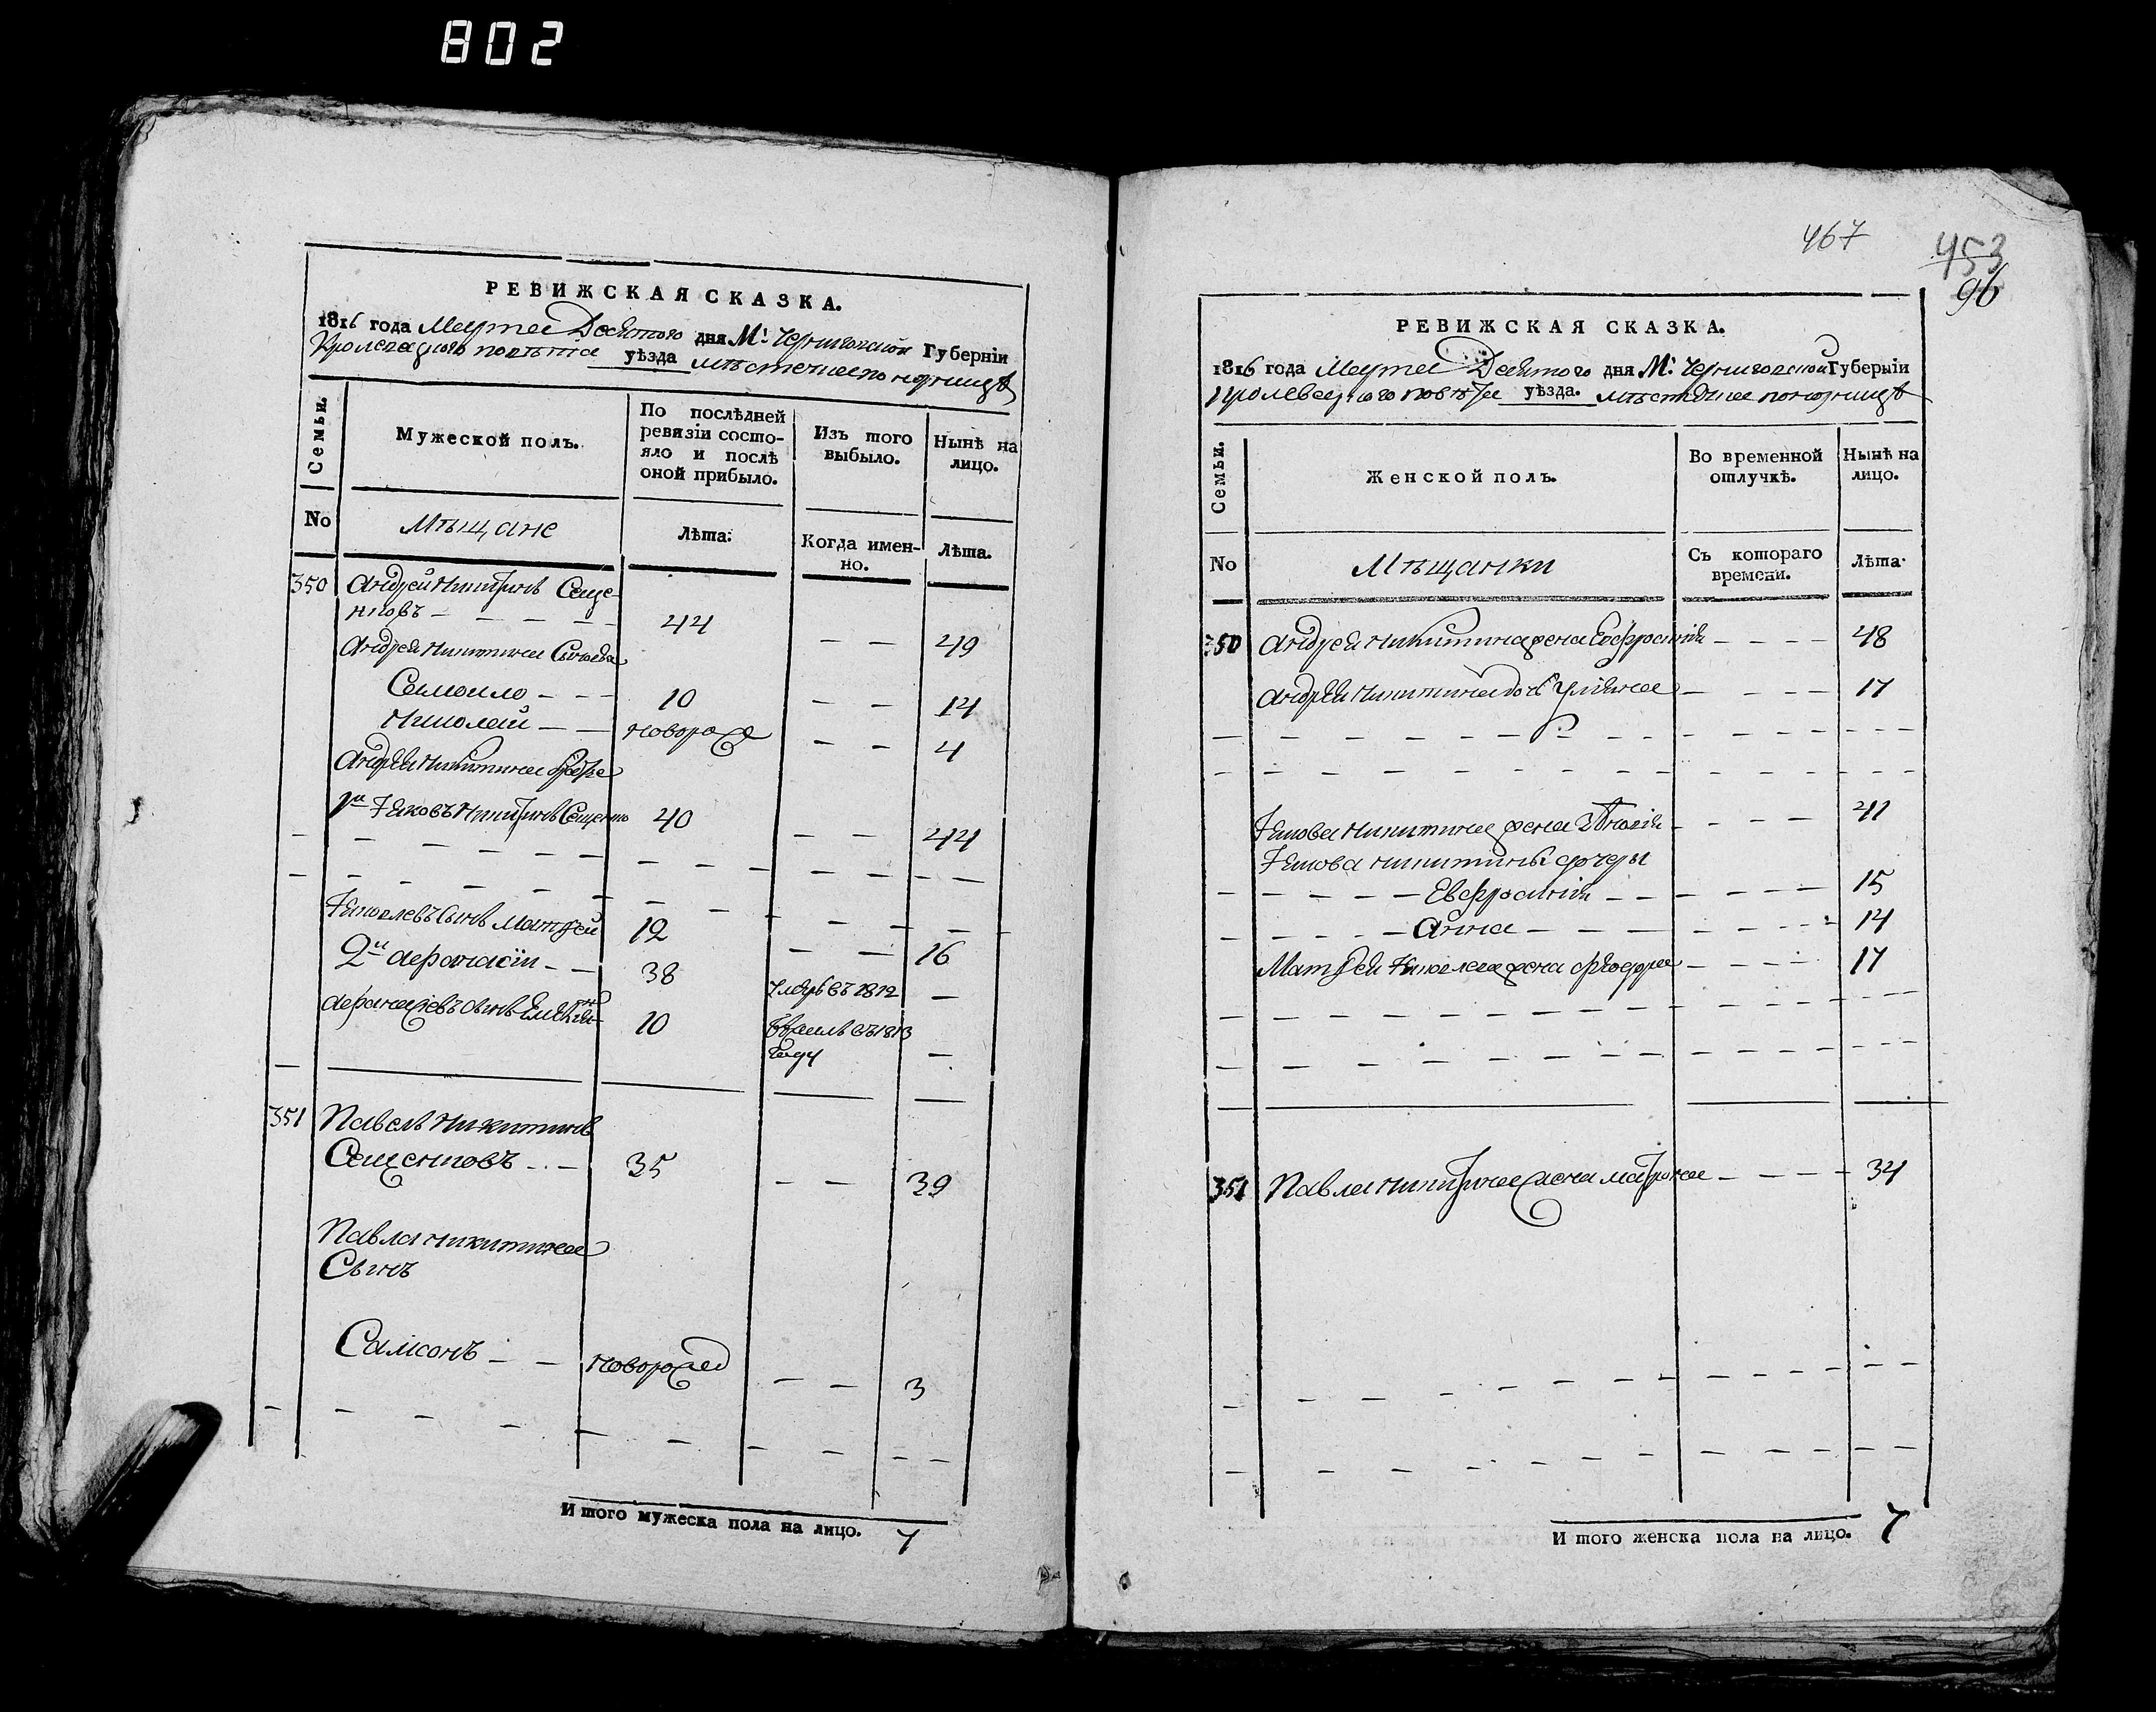 802
РЕВИЖСКАЯ СКАЗКА.
1816 года Марта Десятого дня М: Черниговской Губерніи
Кролевецкого повѣта уѣзда мѣстечка понорницѣ
Семьи.
Мужеской полъ.
По послѣдней ревизіи состояло и послѣ оной прибыло.
Изъ того выбыло.
Нынѣ на лицо.
No
Мѣщане
Лѣта:
Когда именно.
Лѣта.
350 Андрей Никитинъ Соще-
нковъ — 44 — — 49
Андрея Никитина Сыновья
Самоило — — 10 — — 14
Николай — — новорож — — 4
Андрея Никитина братья
1й Яковъ Никитинъ Сещенко 40 — — 44
Яковлевъ Сынъ Матфей 12 — — 16
2й афанасіи — — 38 Умеръ въ 1812 —
афанасіевъ Сынъ 10 въ 1813
году —
351 Павелъ Никитинъ
Сещенковъ — — 35 — — 39
Павла никитина
Сынъ
Самсонъ — — новорожд — — 3
Итого мужеска пола на лицо. 7
467
453
96
РЕВИЖСКАЯ СКАЗКА.
1816 года Марта Десятого дня М: Черниговской Губерніи
Кролевецкого повѣта уѣзда. мѣстечка понорницѣ
Семьи.
Женской полъ.
Во временной отлучкѣ.
Нынѣ на лицо.
No
Мѣщанки
Съ котораго времени.
Лѣта:
350 Андрея Никитина жена Ефросинія — — — — 48
Андрея Никитина дочь Уліяна — — — — 17
Якова Никитина жена — — — — 41
Якова никитины дочеры
Евфросинія — — — — 15
Анна — — — — 14
Матфея Яковлева жена Феодора — — — — 17
351 Павла Никитина жена матрона — — — — 34
Итого женска пола на лицо. 7